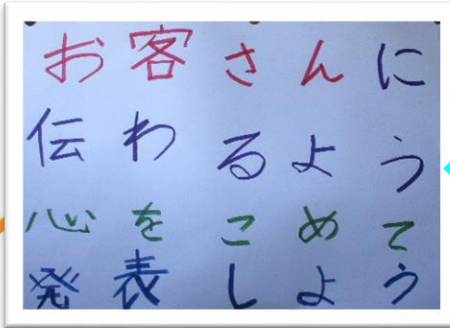 お客さんに
伝わるよう
心をこめて
発表しよう